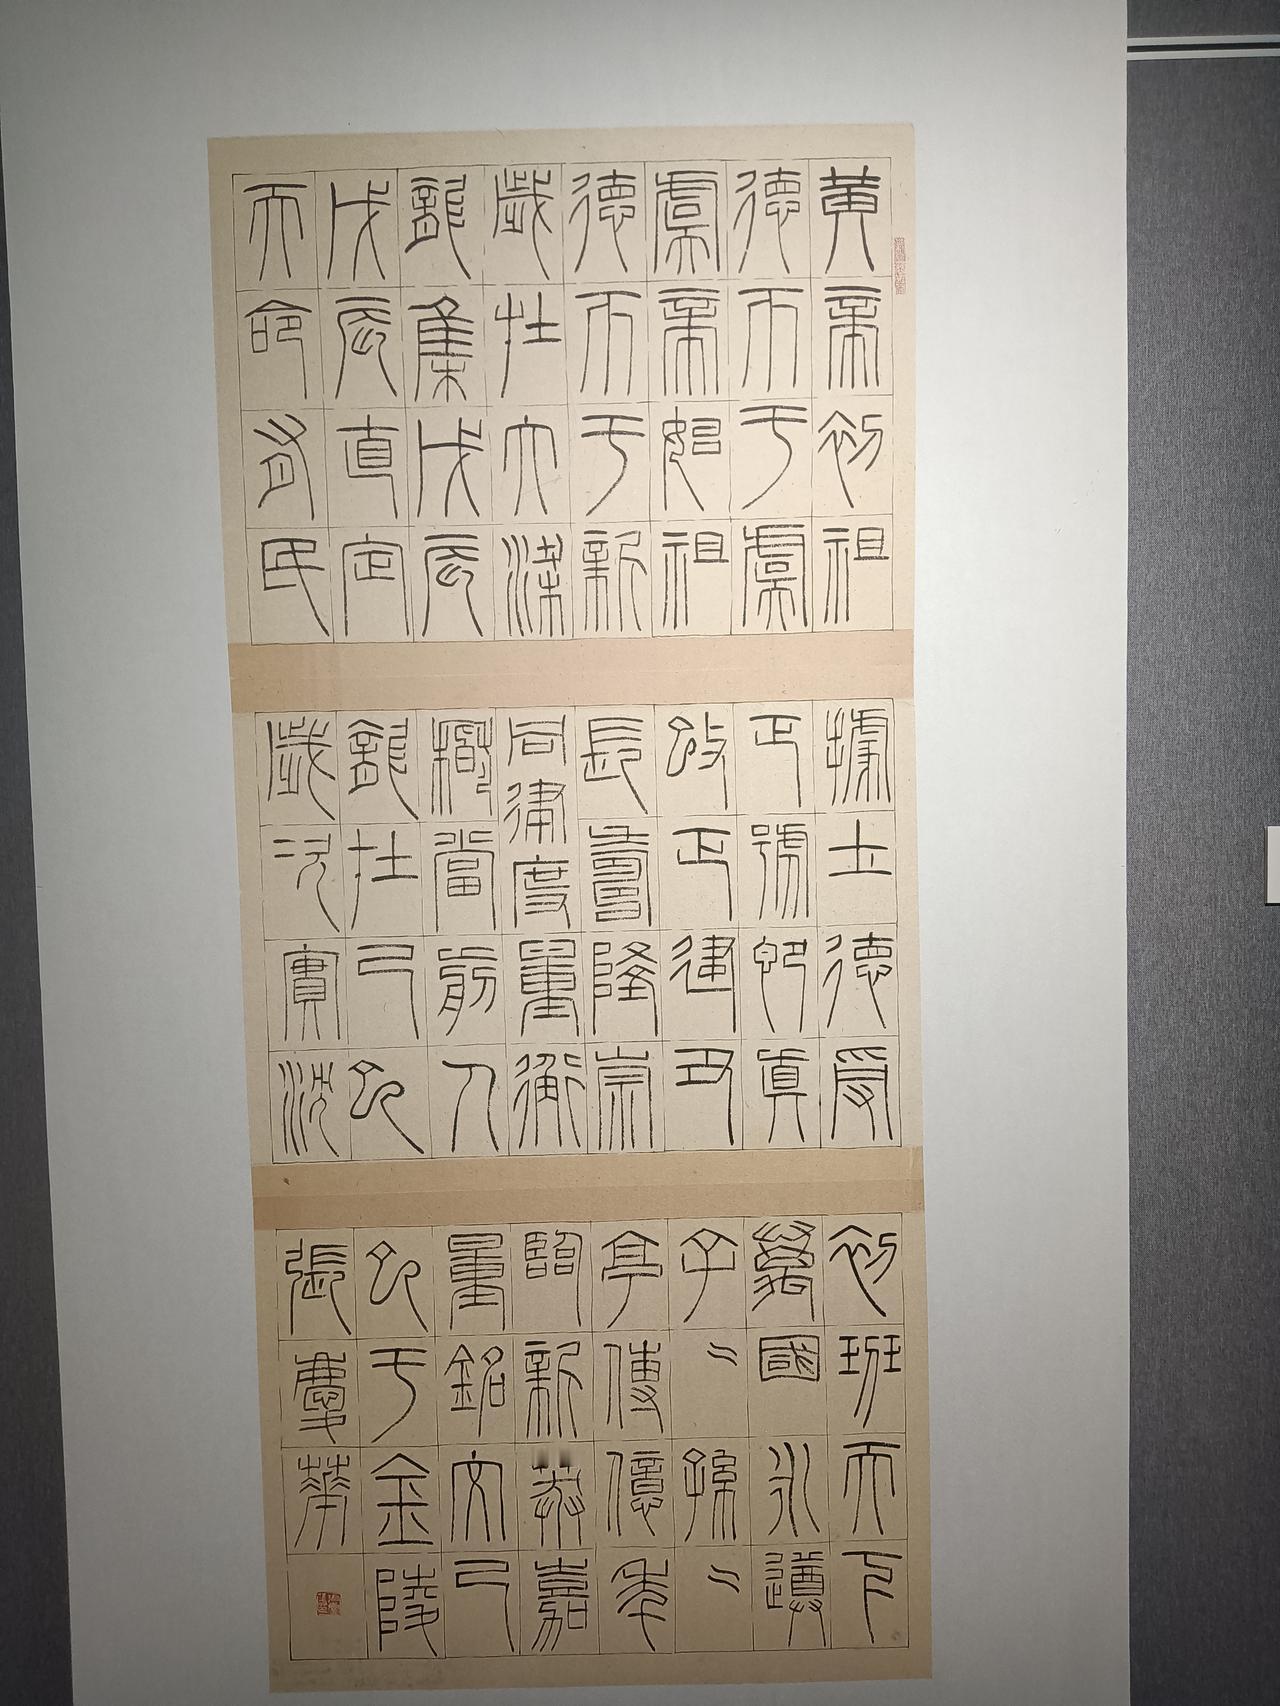 黄帝初祖
德帀于虞
虞帝始祖
德帀于新
歲在大梁
龍集戊辰
戊辰直定
天命有民
據土德受
正號即真
改正建丑
長壽隆崇
同律度量衡
稽當前人
龍在己巳
歲次實沈
初班天下
萬國永遵
子〻孫〻
亨傳億年
臨新莽嘉
量銘文己
巳于金陵
張慶華